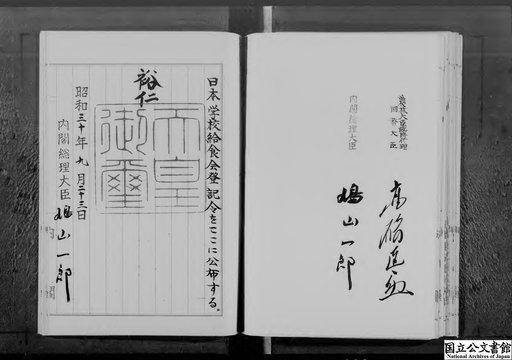 日本学校給食会登記令をここに公布する。
裕仁
天皇御璽
昭和三十年九月二十三日
内閣総理大臣 鳩山一郎
国務大臣
内閣総理大臣 鳩山一郎
国立公文書館
National Archives of Japan